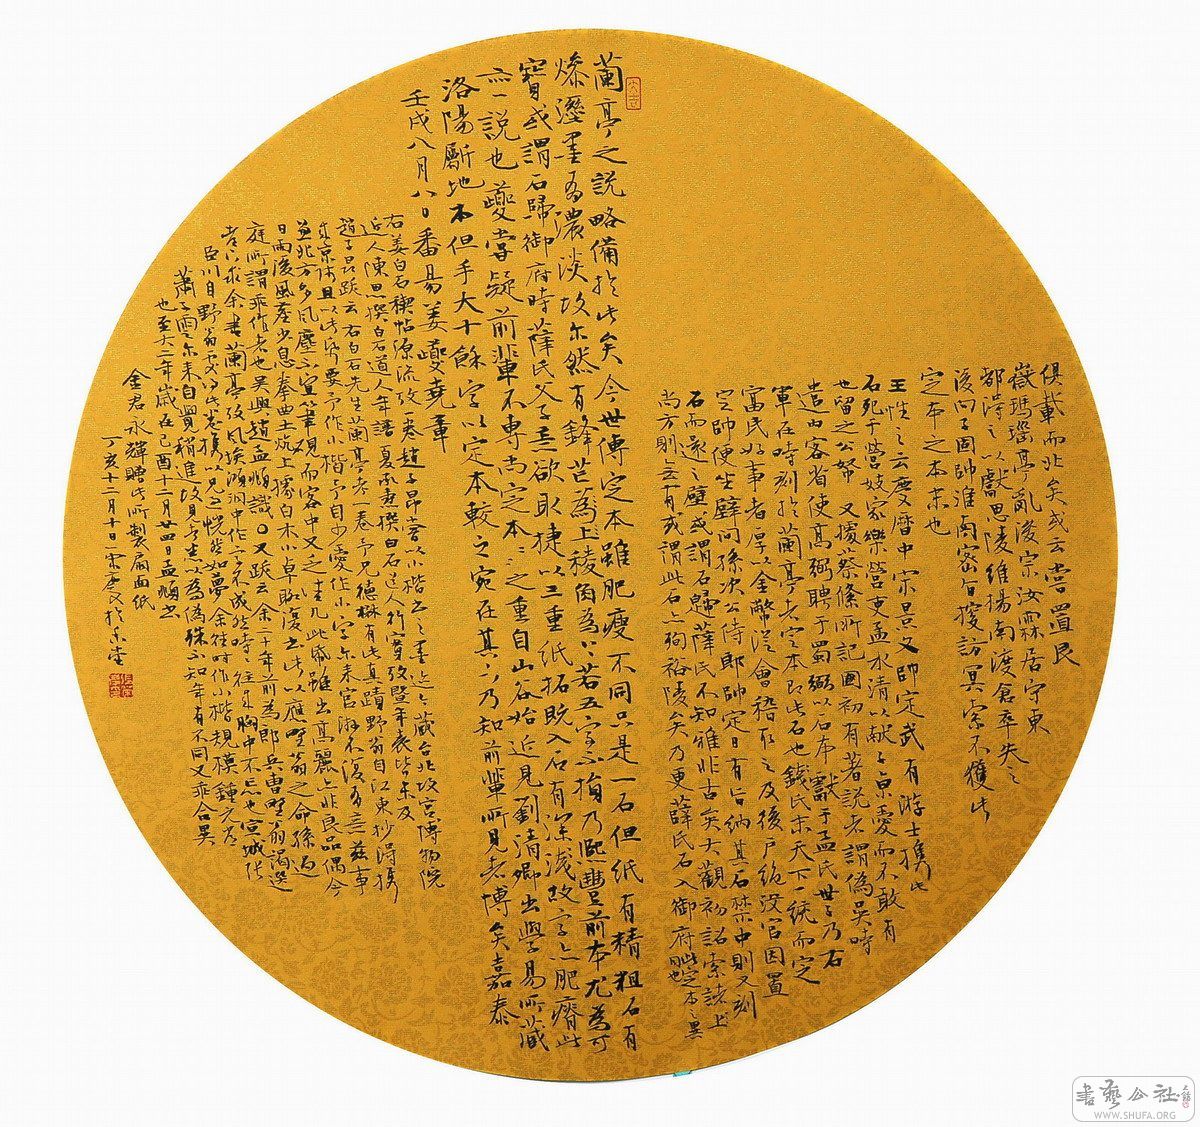 俱載而北矣或云嘗置艮
嶽瑪瑙亭亂後宗汝霖居守東
都得之以獻思陵維揚南渡倉卒失之
後向子固帥淮南密旨搜訪冥索不獲此
定本之本末也
王性之云慶曆中宋景文帥定武有游士攜此
石死于營妓家樂營吏孟水清以獻子京愛而不敢有
也留之公帑又據蔡絛所記國初有著說者謂偽吳時
遣內客省使高弼聘于蜀弼以石本獻于孟氏世子乃右
軍在時刻於蘭亭者定本即此石也錢氏末天下一統而定
富民好事者厚以金幣從會稽取之及後戶絕沒官因置
定帥便坐壁間孫次公侍郎帥定日有旨納其石禁中則又刻
石而還之壁或謂石歸薛氏不知雅非古矣大觀初詔索諸上
尚方則無有或謂此石亦殉裕陵矣乃更薛氏石入御府此定本之異也
蘭亭之說略備於此矣今世傳定本雖肥瘦不同只是一石但紙有精粗石有
燥溼墨有濃淡故尔然有鋒芒藏上稜角為上若五字不損乃熙豐前本尤為可
寶或謂石歸御府時薛氏父子意欲取捷以三重紙拓既入石有深淺故字亦肥瘠此
亦一說也夔嘗疑前輩不專尚定本定本之重自山谷始近見劉清卿出學易所藏
洛陽斸地本但手大十餘字以定本較之宛在其下乃知前輩所見者博矣嘉泰
壬戌八月八日番昜姜夔堯章
右姜白石禊帖源流攷一卷趙子昂嘗以小楷書之墨迹今藏台北故宮博物院
近人陳思撰白石道人年譜夏承燾撰白石道人行實攷暨年表皆未及
趙子昂跋云右白石先生蘭亭考一卷予兄德楙有此真蹟野翁自江東抄得攜
來京師且以此紙要予作小楷予自少愛作小字尓来宦游不復有意茲事
並北方多風塵不宜筆硯而客中又乏佳几此紙雖出高麗亦非良品偶今
日雨後風塵少息拳曲土炕上據白木小卓輒復書此以應野翁之命孫過
庭所謂乖作者也吳興趙孟頫識〇又跋云余二十年前為郎兵曹野翁謁選
者亦求余書蘭亭攷風埃澒洞中作字不成然時時往来胸中不忘也宣城張
臣川自野翁處得此卷攜以見過恍然如夢余往時作小楷規模鍾元常
蕭子雲尓来自覺稍進故見者悉以為偽殊不知年有不同又乖合異
也至大二年歲在己酉十二月廿四日孟頫書
金君永輝贈此所製扇面紙
丁亥十二月十日
書藝公社
WWW.SHUFA.ORG